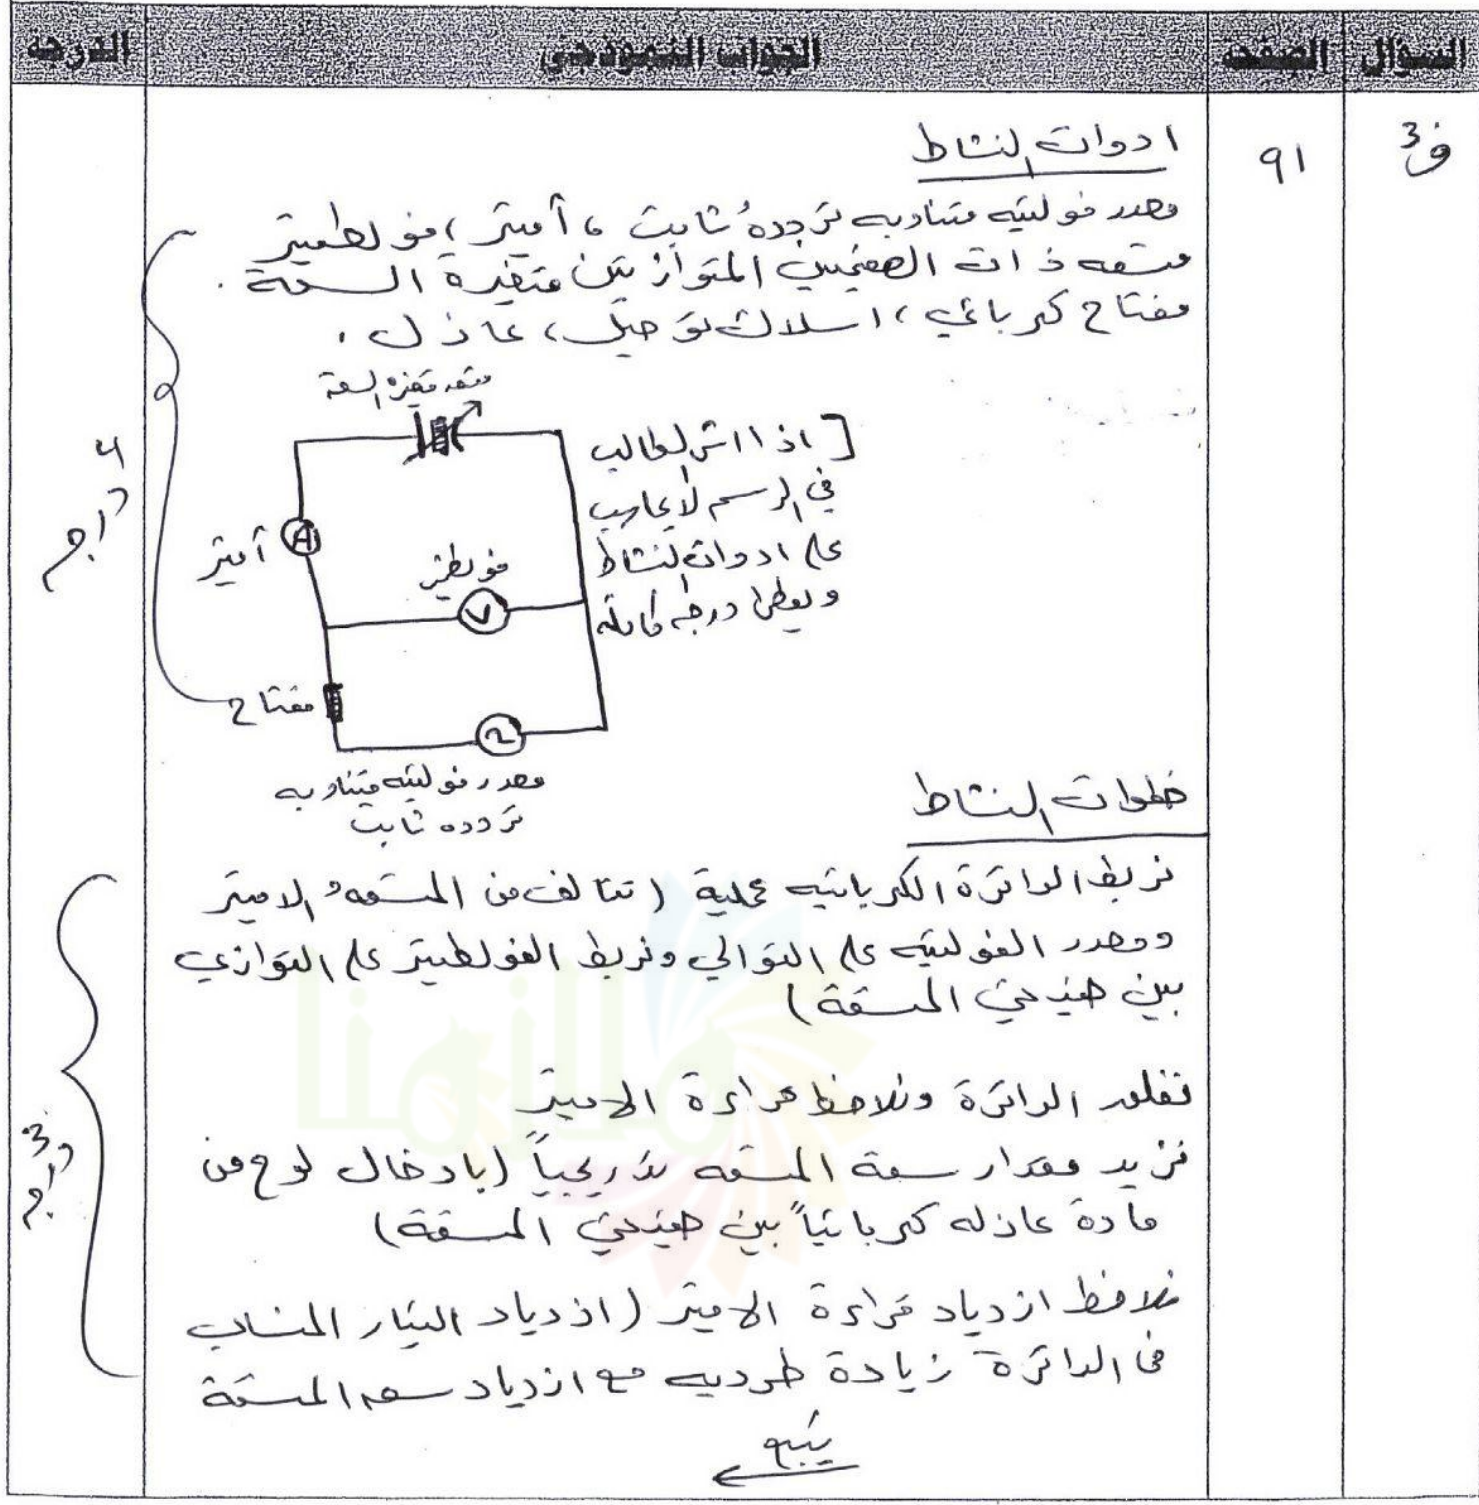 السؤال الصفحة الجواب النموذجي الدرجة
ف3
91
ادوات النشاط
مصدر فولتيه متناوبه تردده ثابت ، أميتر ، فولطميتر
متسعه ذات الصفيحتين المتوازيتين متغيرة السعة .
مفتاح كهربائي ، اسلاك توصيل ، عازل .
متسعه متغيره السعة
[ اذا اشر الطالب
في الرسم لا يحاسب
على ادوات النشاط
ويعطى درجه كامله
أميتر
A
فولطميتر
V
مفتاح
مصدر فولتيه متناوبه
تردده ثابت
4 دراجم
خطوات النشاط
نربط الدائرة الكهربائيه عملية ( تتألف من المتسعه والاميتر
ومصدر الفولتيه على التوالي ونربط الفولطميتر على التوازي
بين صفيحتي المتسعة )
نغلق الدائرة ونلاحظ قراءة الاميتر
نزيد مقدار سعة المتسعه تدريجياً ( بادخال لوح من
مادة عازله كهربائياً بين صفيحتي المتسعة )
نلاحظ ازدياد قراءة الاميتر ( ازدياد التيار المنساب
في الدائرة زيادة طرديه مع ازدياد سعه المتسعة
يتبع
3
ملازمنا